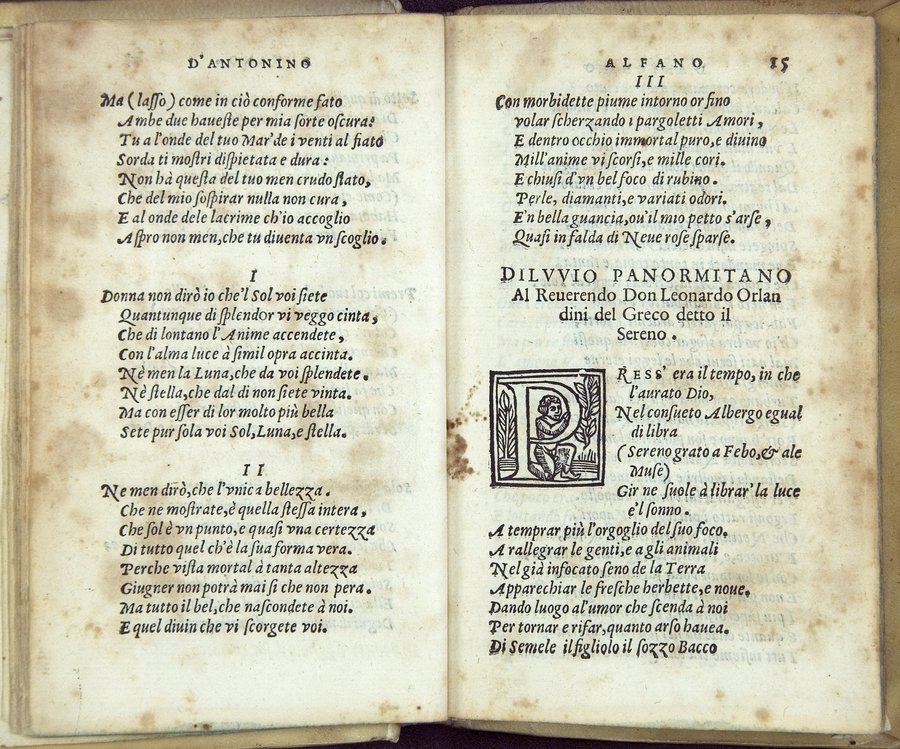 D'ANTONINO
Ma (lasso) come in ciò conforme fato
Ambe due haueste per mia sorte oscura:
Tu a l'onde del tuo Mar'de i venti al fiato
Sorda ti mostri dispietata e dura:
Non hà questa del tuo men crudo stato,
Che del mio sospirar nulla non cura,
E al onde dele lacrime ch'io accoglio
Aspro non men, che tu diuenta vn scoglio.
I
Donna non dirò io che'l Sol voi siete
Quantunque di splendor vi veggo cinta,
Che di lontano l'Anime accendete,
Con l'alma luce à simil opra accinta.
Nè men la Luna, che da voi splendete.
Nè stella, che dal dì non siete vinta.
Ma con esser di lor molto più bella
Sete pur sola voi Sol, Luna, e stella.
II
Ne men dirò, che l'vnica bellezza.
Che ne mostrate, è quella stessa intera,
Che sol è vn punto, e quasi vna certezza
Di tutto quel ch'è la sua forma vera.
Perche vista mortal à tanta altezza
Giugner non potrà mai si che non pera.
Ma tutto il bel, che nascondete à noi.
E quel diuin che vi scorgete voi.
ALFANO 15
III
Con morbidette piume intorno or fino
volar scherzando i pargoletti Amori,
E dentro occhio immortal puro, e diuino
Mill'anime vi scorsi, e mille cori.
E chiusi d'vn bel foco di rubino.
Perle, diamanti, e variati odori.
E'n bella guancia, ou'il mio petto s'arse,
Quasi in falda di Neue rose sparse.
DILVVIO PANORMITANO
Al Reuerendo Don Leonardo Orlan
dini del Greco detto il
Sereno.
PRESS' era il tempo, in che
l'aurato Dio,
Nel consueto Albergo egual
di libra
(Sereno grato a Febo, & ale
Muse)
Gir ne suole à librar' la luce
e'l sonno.
A temprar più l'orgoglio del suo foco.
A rallegrar le genti, e a gli animali
Nel già infocato seno de la Terra
Apparechiar le fresche herbette, e noue.
Dando luogo al'umor che scenda à noi
Per tornar e rifar, quanto arso hauea.
Di Semele il figliolo il sozzo Bacco